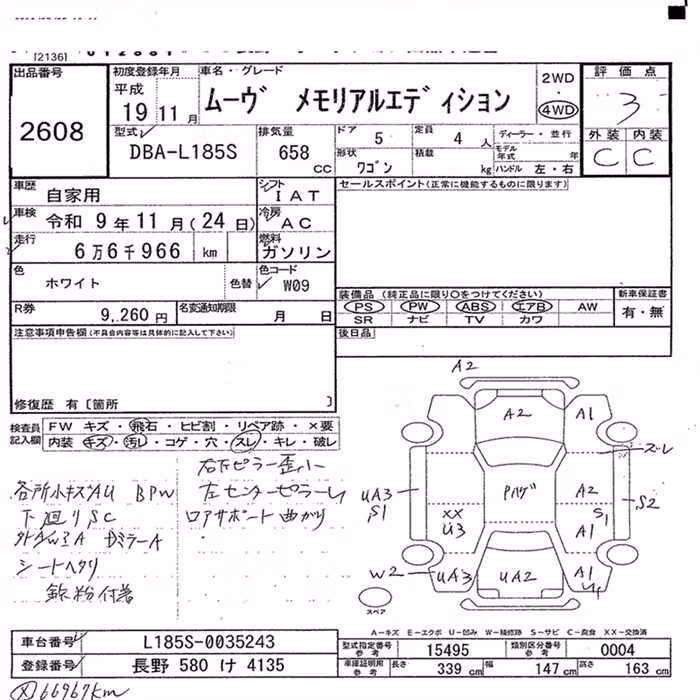 [2136]
出品番号
2608
初度登録年月
平成
19 11 月
車名・グレード
ムーヴ メモリアルエディション
2WD
・
4WD
評価点
3
外装 内装
C C
型式
DBA-L185S
排気量
658 CC
ドア 5
定員 4 人
形状 ワゴン
積載 kg
ディーラー・並行
モデル年式 年
ハンドル 左・右
車歴
自家用
シフト
IAT
車検
令和 9 年 11 月 (24 日)
冷房
AC
走行
6万6千966 km
燃料
ガソリン
色
ホワイト
色替
色コード
W09
R券
9,260 円
名変通知期限
月 日
セールスポイント(正常に機能するものに限ります)
装備品 (純正品に限り○をつけてください)
PS PW ABS エアB AW
SR ナビ TV カワ
新車保証書
有・無
後日品
注意事項申告欄(不具合内容等は具体的に記入して下さい)
修復歴 有〔箇所 〕
検査員記入欄
FW キズ・飛石・ヒビ割・リペア跡・×要
内装 キズ・汚レ・コゲ・穴・スレ・キレ・破レ
各所小キズAU BPW
下廻りSC
DミラーA
シートヘタリ
鉄粉付着
右下ピラー歪小
左センターピラー
ロアサポート曲がり
A2
A2
A1
スレ
A2
Pハゲ
UA3
S1
XX
U3
S1
A1
S2
W2
UA3
UA2
A1
スペア
A-キズ E-エクボ U-凹み W-補修跡 S-サビ C-腐食 XX-交換済
車台番号
L185S-0035243
登録番号
長野 580 け 4135
型式指定番号 参考
15495
類別区分番号 参考
0004
車庫証明用 参考
長さ 339 cm
幅 147 cm
高さ 163 cm
66967km